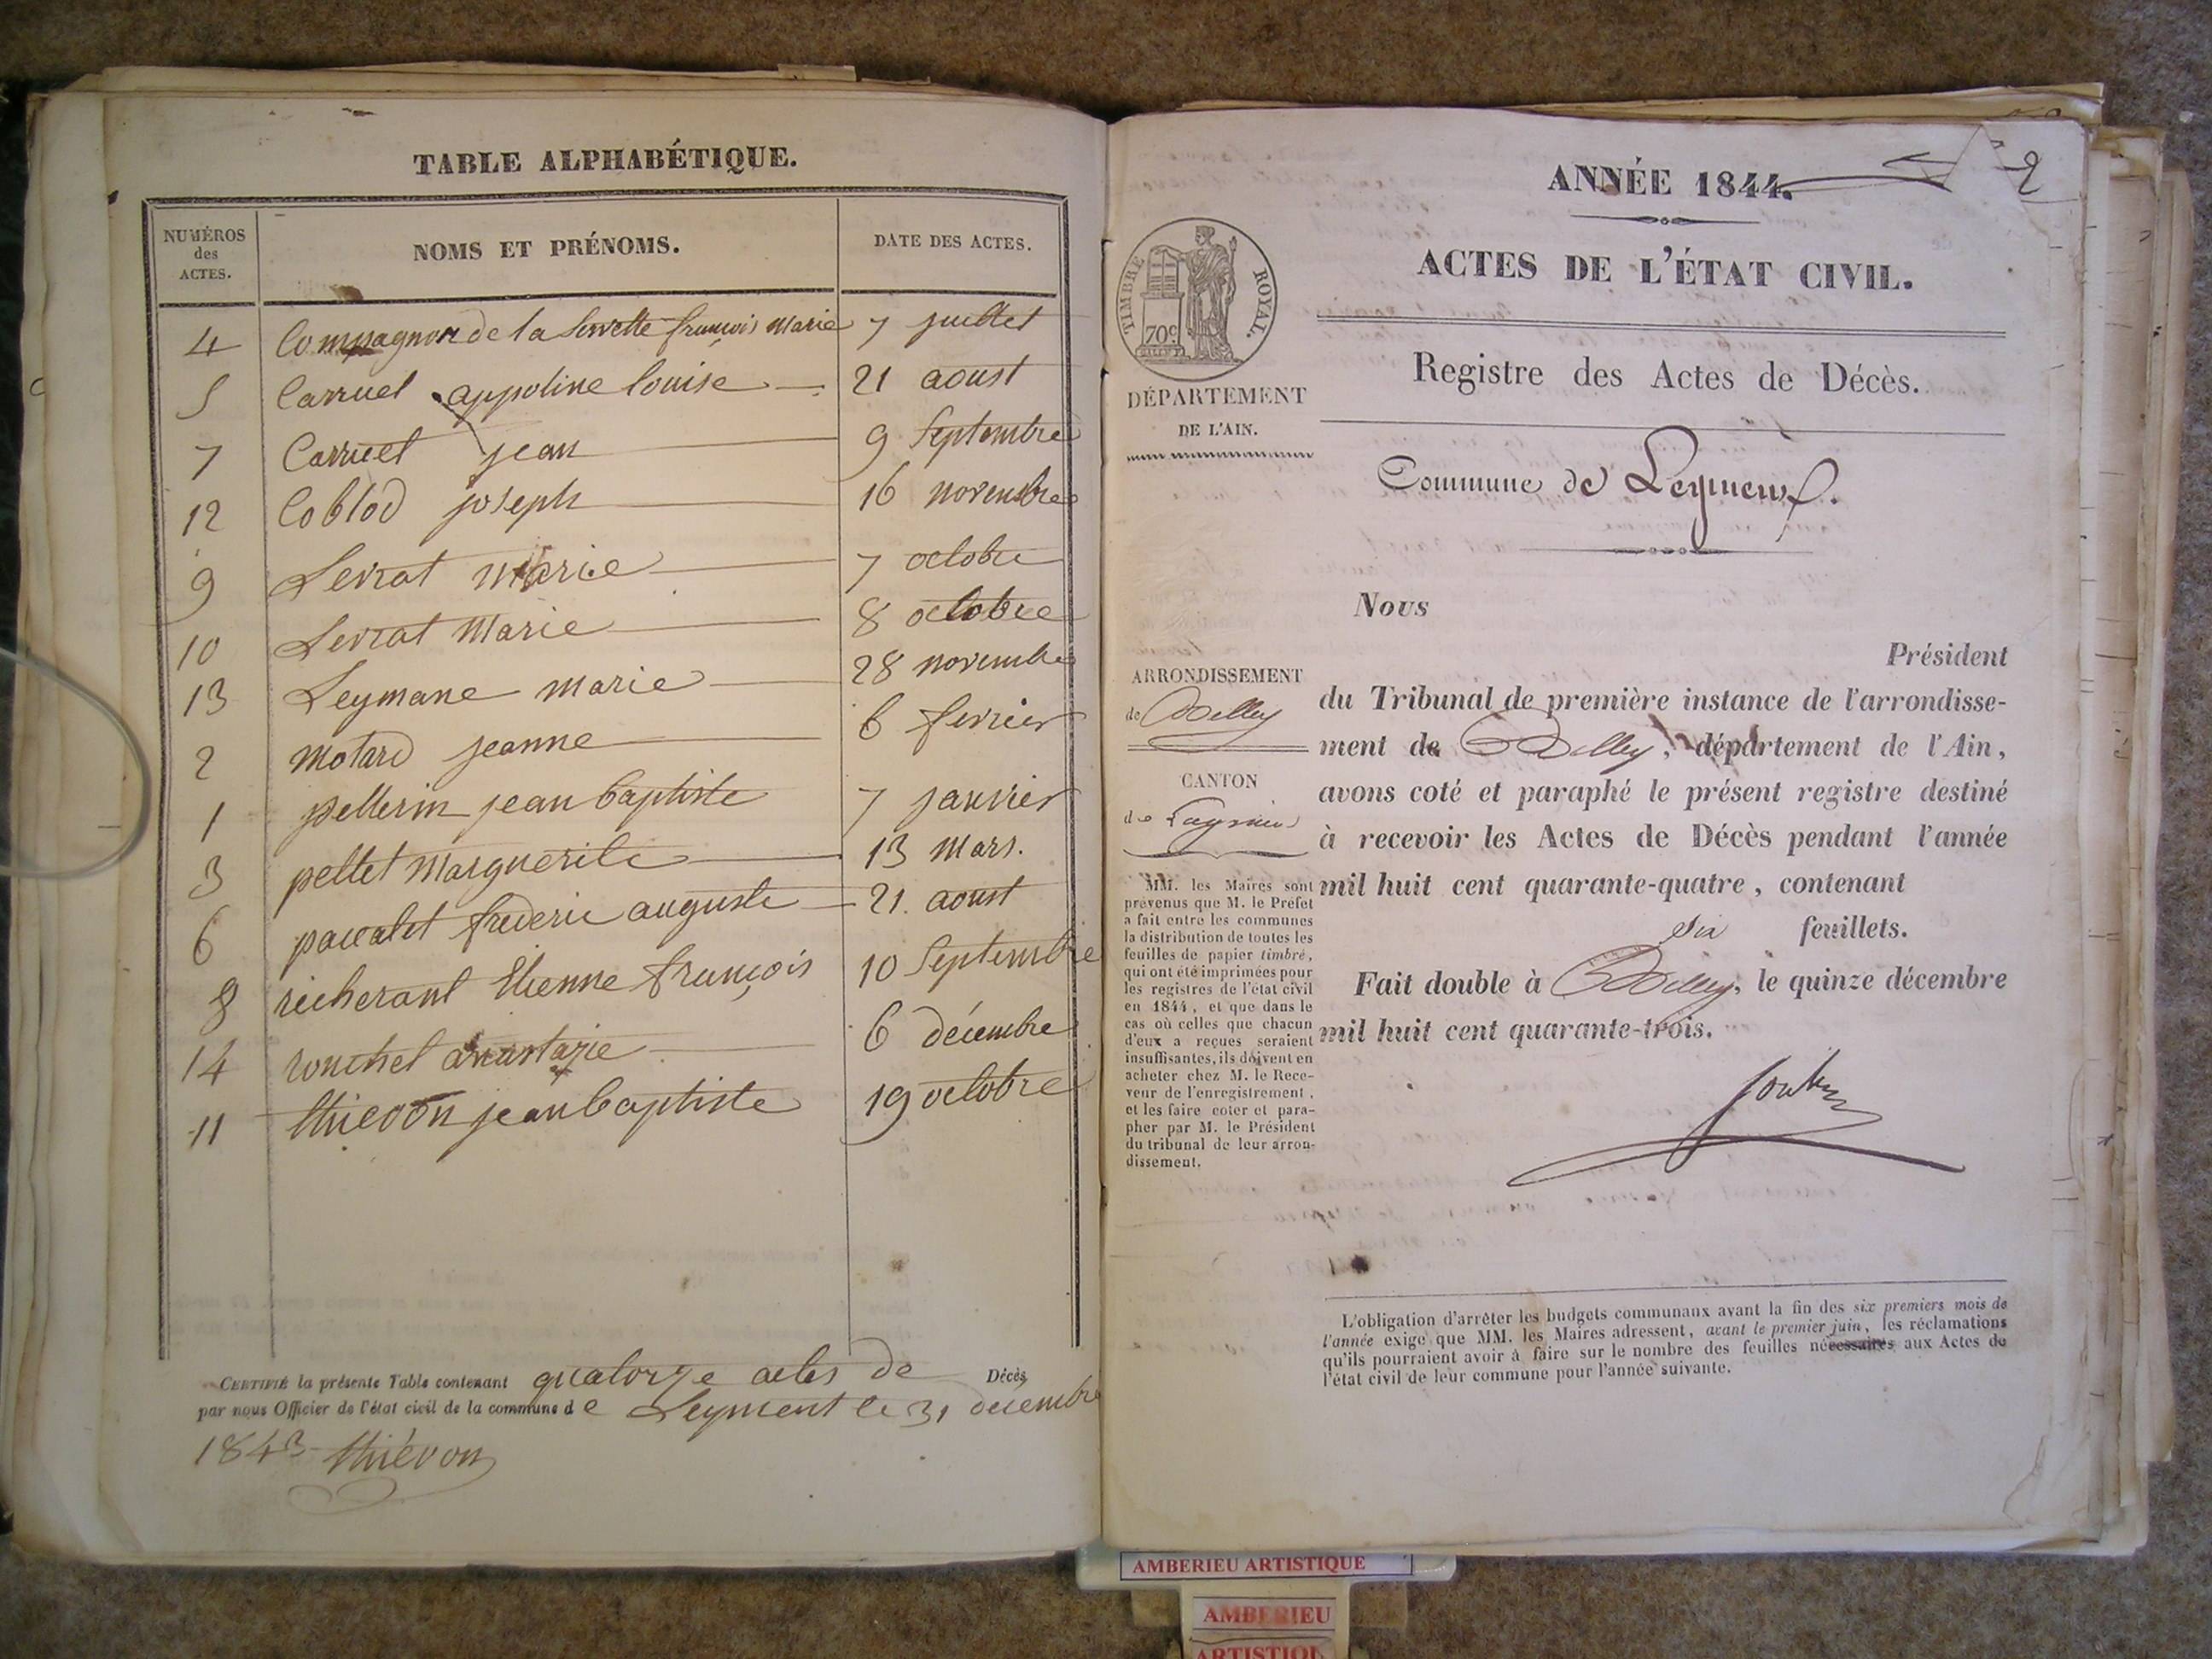 TABLE ALPHABÉTIQUE.
NUMÉROS des ACTES. NOMS ET PRÉNOMS. DATE DES ACTES.
4 Compagnon de la Servette françois Marie 7 juillet
5 Carruel appoline louise 21 aoust
7 Carruel jean 9 Septembre
12 Coblod joseph 16 novembre
9 Levrat Marie 7 octobre
10 Levrat Marie 8 octobre
13 Leymane marie 28 novembre
2 Motard jeanne 6 fevrier
1 pellerin jean baptiste 7 janvier
3 pellet Marguerite 13 Mars.
6 pascalet frederic auguste 21. aoust
8 richerant Etienne françois 10 Septembre
14 rouchet anastazie 6 décembre
11 thievon jean baptiste 19 octobre
CERTIFIÉ la présente Table contenant quatorze actes de Décès
par nous Officier de l'état civil de la commune de Leyment le 31 décembre
1843 thiévon
ANNÉE 1844. 2
ACTES DE L'ÉTAT CIVIL.
TIMBRE ROYAL.
70c
DÉPARTEMENT
DE L'AIN.
Registre des Actes de Décès.
Commune de Leyment.
Nous
Président
du Tribunal de première instance de l'arrondisse-
ment de Belley, département de l'Ain,
avons coté et paraphé le présent registre destiné
à recevoir les Actes de Décès pendant l'année
mil huit cent quarante-quatre, contenant
six feuillets.
Fait double à Belley, le quinze décembre
mil huit cent quarante-trois.
ARRONDISSEMENT
de Belley
CANTON
de Lagnieu
MM. les Maires sont
prévenus que M. le Préfet
a fait entre les communes
la distribution de toutes les
feuilles de papier timbré,
qui ont été imprimées pour
les registres de l'état civil
en 1844, et que dans le
cas où celles que chacun
d'eux a reçues seraient
insuffisantes, ils doivent en
acheter chez M. le Rece-
veur de l'enregistrement,
et les faire coter et para-
pher par M. le Président
du tribunal de leur arron-
dissement.
L'obligation d'arrêter les budgets communaux avant la fin des six premiers mois de
l'année exige que MM. les Maires adressent, avant le premier juin, les réclamations
qu'ils pourraient avoir à faire sur le nombre des feuilles nécessaires aux Actes de
l'état civil de leur commune pour l'année suivante.
AMBERIEU ARTISTIQUE
AMBERIEU
ARTISTIQU